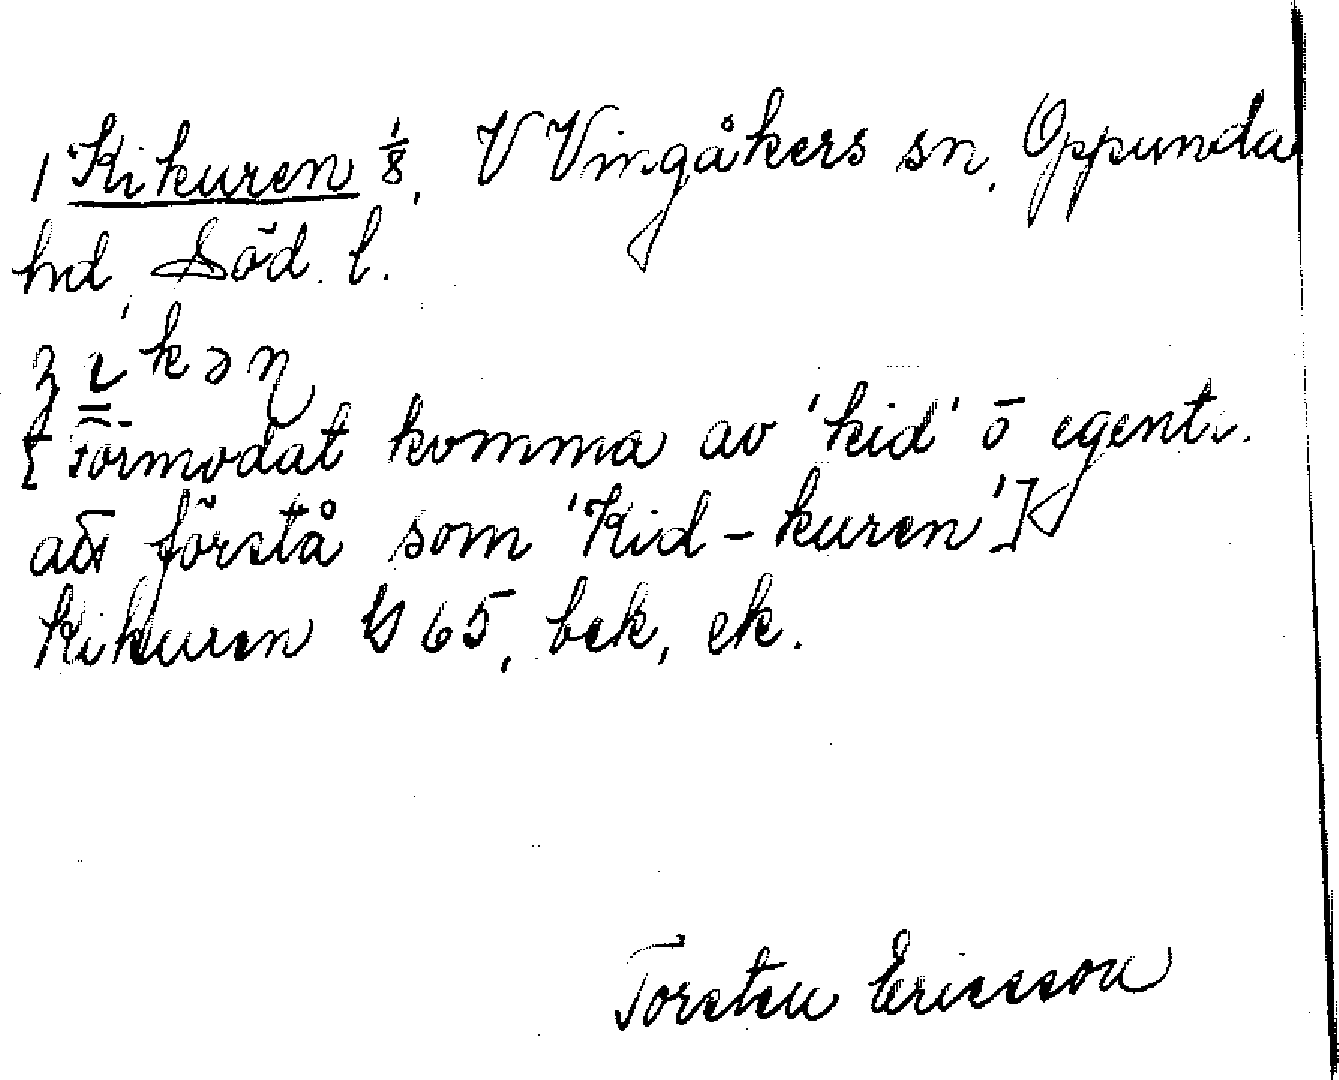 1 Kikuren 1/8, V Vingåkers sn, Oppunda
hd, Söd. l.
[Förmodat komma av 'kid' o egentl.
att förstå som 'Kid-kuren']
Kikuren G 65, bek, ek.
Torsten Ericsson